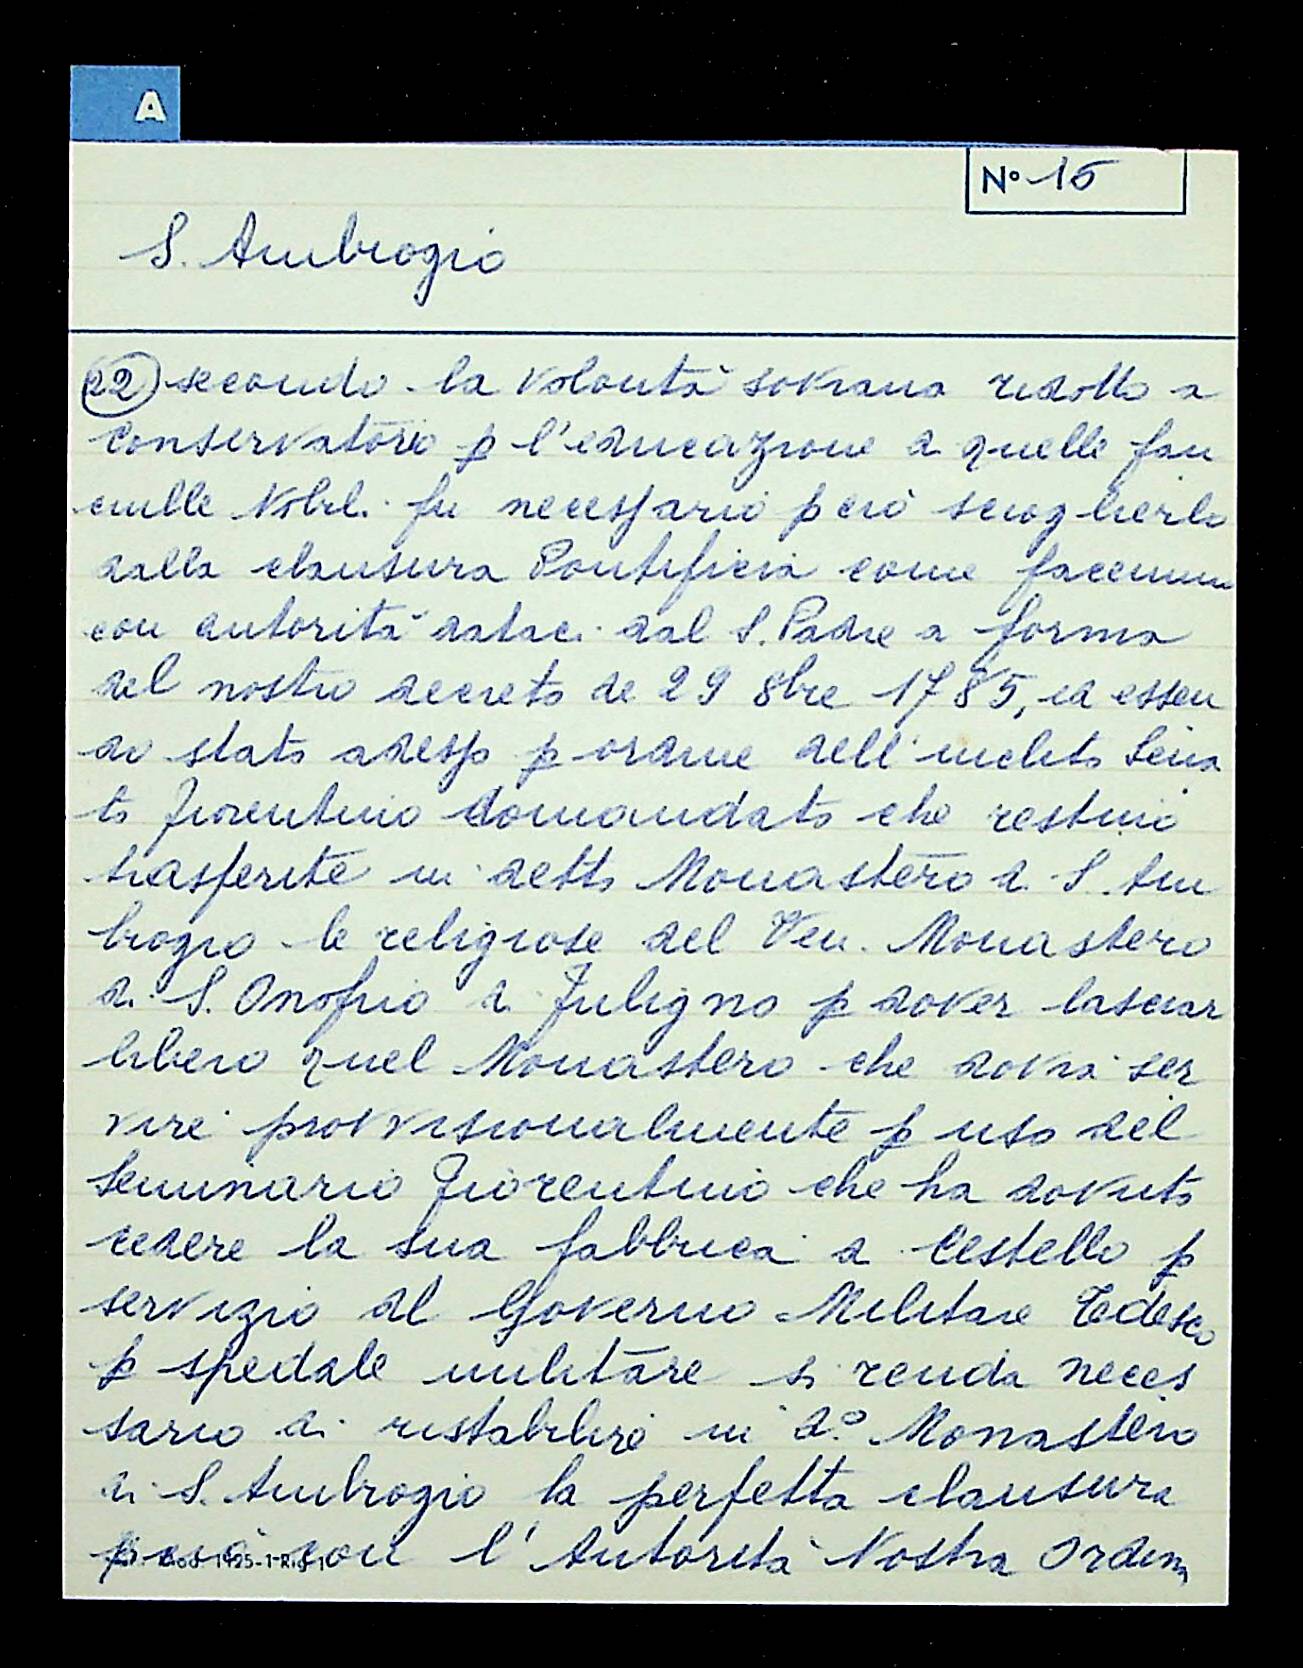 A
N° 15
S. Ambrogio
22 secondo la volontà sovrana ridotto a
conservatorio p l'educazione di quelle fan
ciulle Nobili fu necessario perciò scioglierlo
dalla clausura Pontificia come facemmo
con autorità dataci dal S. Padre a forma
del nostro decreto de 29 8bre 1785, ed essen
do stato adesso p ordine dell'inclito Sena
to Fiorentino domandato che restino
trasferite in detto Monastero di S. Am
brogio le religiose del Ven. Monastero
di S. Onofrio di Fuligno p dover lasciar
libero quel Monastero che dovrà ser
vire provvisionalmente p uso del
Seminario Fiorentino che ha dovuto
cedere la sua fabbrica di Cestello p
servizio del Governo Militare Tedesco
p spedale militare si renda neces
sario di ristabilire in d.° Monastero
di S. Ambrogio la perfetta clausura
perciò con l'Autorità Nostra Ordin